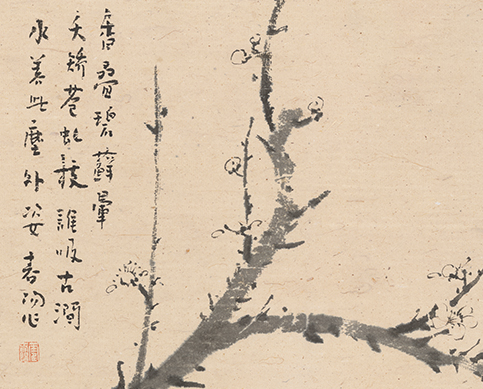 重疊碧蘚暈
夭矯蒼虬枝誰汲古澗
水養此塵外姿春作